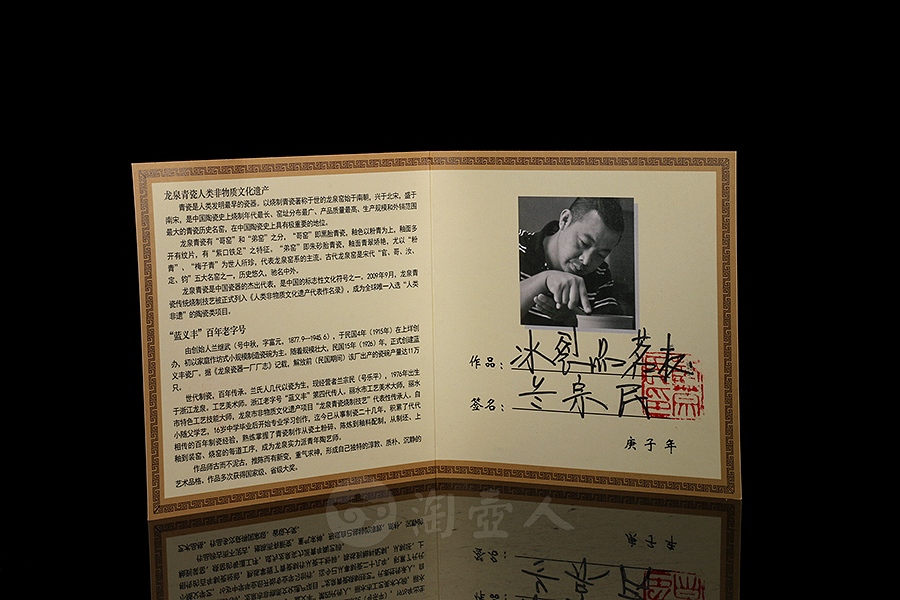 龙泉青瓷人类非物质文化遗产
青瓷是人类发明最早的瓷器，以烧制青瓷著称于世的龙泉窑始于南朝，兴于北宋，盛于
南宋，是中国陶瓷史上烧制年代最长、窑址分布最广、产品质量最高、生产规模和外销范围
最大的青瓷历史名窑，在中国陶瓷史上具有极重要的地位。
龙泉青瓷有“哥窑”和“弟窑”之分，“哥窑”即黑胎青瓷，釉色以粉青为上，釉面多
开有纹片，有“紫口铁足”之特征。“弟窑”即朱砂胎青瓷，釉面青翠娇艳，尤以“粉
青”、“梅子青”为世人所珍，代表龙泉窑系的主流。古代龙泉窑是宋代“官、哥、汝、
定、钧”五大名窑之一，历史悠久，驰名中外。
龙泉青瓷是中国瓷器的杰出代表，是中国的标志性文化符号之一，2009年9月，龙泉青
瓷传统烧制技艺被正式列入《人类非物质文化遗产代表作名录》，成为全球唯一入选“人类
非遗”的陶瓷类项目。
“蓝义丰”百年老字号
由创始人兰继武（号中秋，字富元，1877.9—1945.6），于民国4年（1915年）在上垟创
办，初以家庭作坊式小规模制造瓷碗为主。随着规模壮大，民国15年（1926）年，正式创建蓝
义丰瓷厂。据《龙泉瓷器一厂厂志》记载，解放前（民国期间）该厂出产的瓷碗产量达11万
只。
世代制瓷，百年传承，兰氏人几代以瓷为生，现经营者兰宗民（号乐平），1976年出生
于浙江龙泉，工艺美术师。浙江老字号“蓝义丰”第四代传人，丽水市工艺美术大师，丽水
市特色工艺技能大师，龙泉市非物质文化遗产项目“龙泉青瓷烧制技艺”代表性传承人，自
小随父学艺，16岁中学毕业后开始专业学习创作，迄今已从事制瓷二十几年，积累了代代
相传的百年制瓷经验，熟练掌握了青瓷制作从瓷土粉碎、陈炼到釉料配制，从制坯、上
釉到装窑、烧窑的每道工序，成为龙泉实力派青年陶艺师。
作品师古而不泥古，推陈而有新变，重气求神，形成自己独特的淳敦、质朴、沉静的
艺术品格，作品多次获得国家级、省级大奖。
作品：冰裂
签名：兰宗民
庚子年
淘壶人